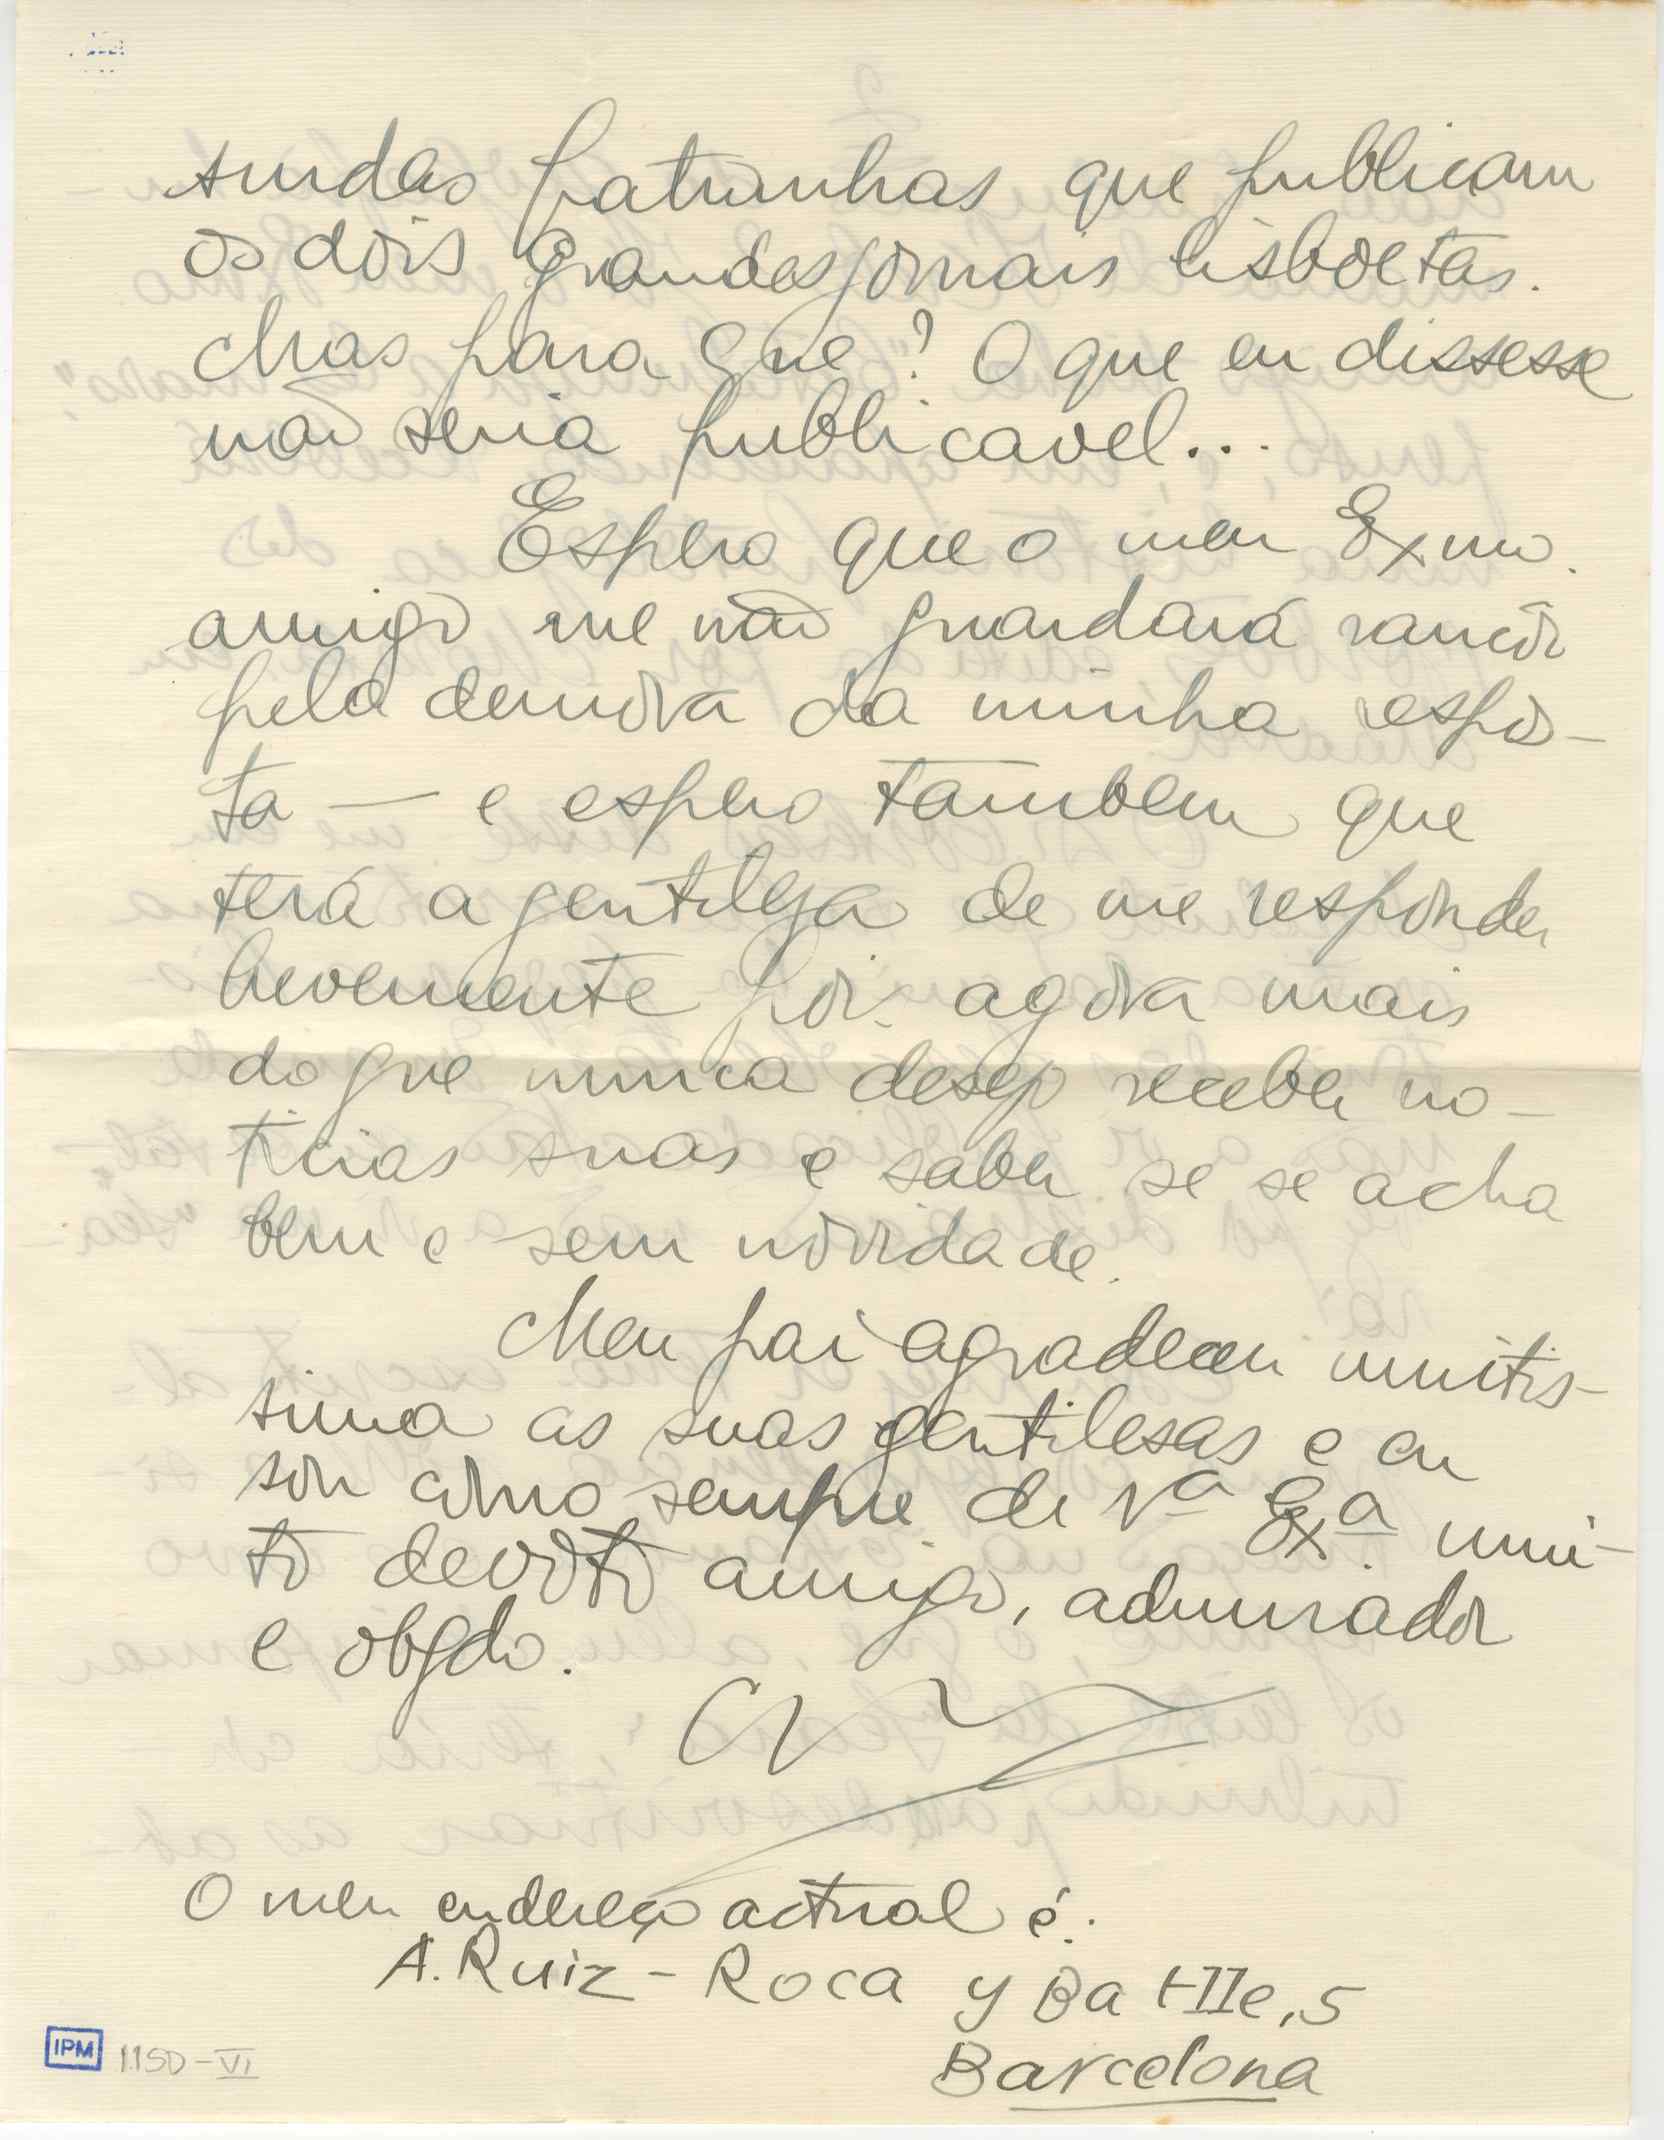 surdas patranhas que publicam
os dois grandes jornais lisboetas.
Mas para que? O que eu dissesse
não seria publicavel...
Espero que o meu Exmo.
amigo me não guardará rancôr
pela demora da minha respos-
ta — e espero tambem que
terá a gentileza de me responder
brevemente pois agora mais
do que nunca desejo receber no-
ticias suas e saber se se acha
bem e sem novidade.
Meu pai agradeceu muitis-
simo as suas gentilesas e eu
sou como sempre de Vª Exª. mui-
to devoto amigo, admirador
e obgdo.
O meu endereço actual é:
A. Ruiz - Roca y Batlle, 5
Barcelona
IPM 1150-VI